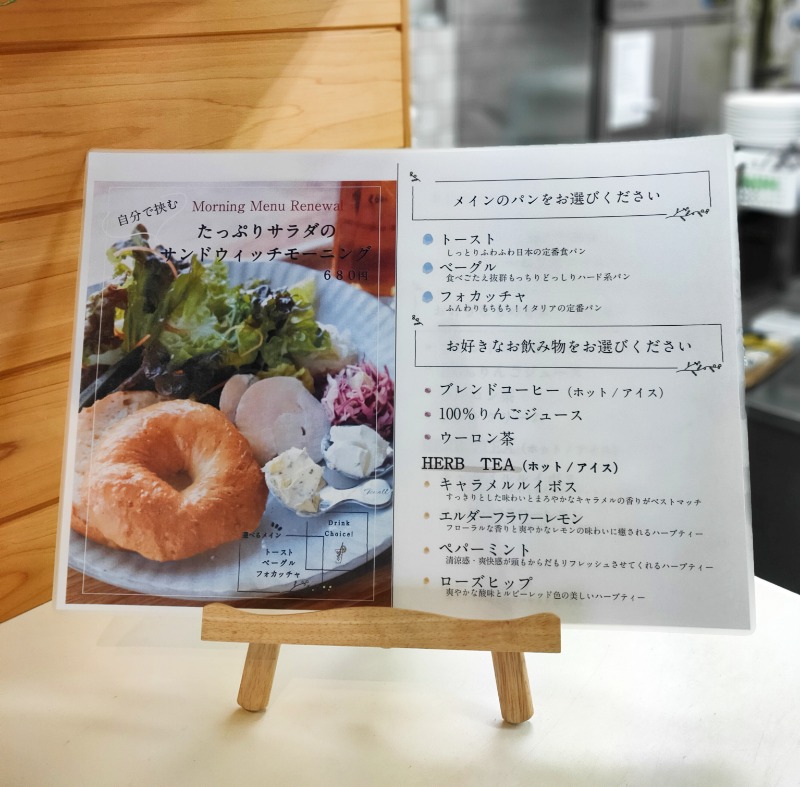 自分で挟む
Morning Menu Renewal
たっぷりサラダの
サンドウィッチモーニング
680円
選べるメイン
トースト
ベーグル
フォカッチャ
Drink
Choice!
メインのパンをお選びください
トースト
しっとりふわふわ日本の定番食パン
ベーグル
食べごたえ抜群もっちりどっしりハード系パン
フォカッチャ
ふんわりもちもち！イタリアの定番パン
お好きなお飲み物をお選びください
ブレンドコーヒー（ホット / アイス）
100％りんごジュース
ウーロン茶
HERB TEA（ホット / アイス）
キャラメルルイボス
すっきりとした味わいとまろやかなキャラメルの香りがベストマッチ
エルダーフラワーレモン
フローラルな香りと爽やかなレモンの味わいに癒されるハーブティー
ペパーミント
清涼感・爽快感が頭もからだもリフレッシュさせてくれるハーブティー
ローズヒップ
爽やかな酸味とルビーレッド色の美しいハーブティー